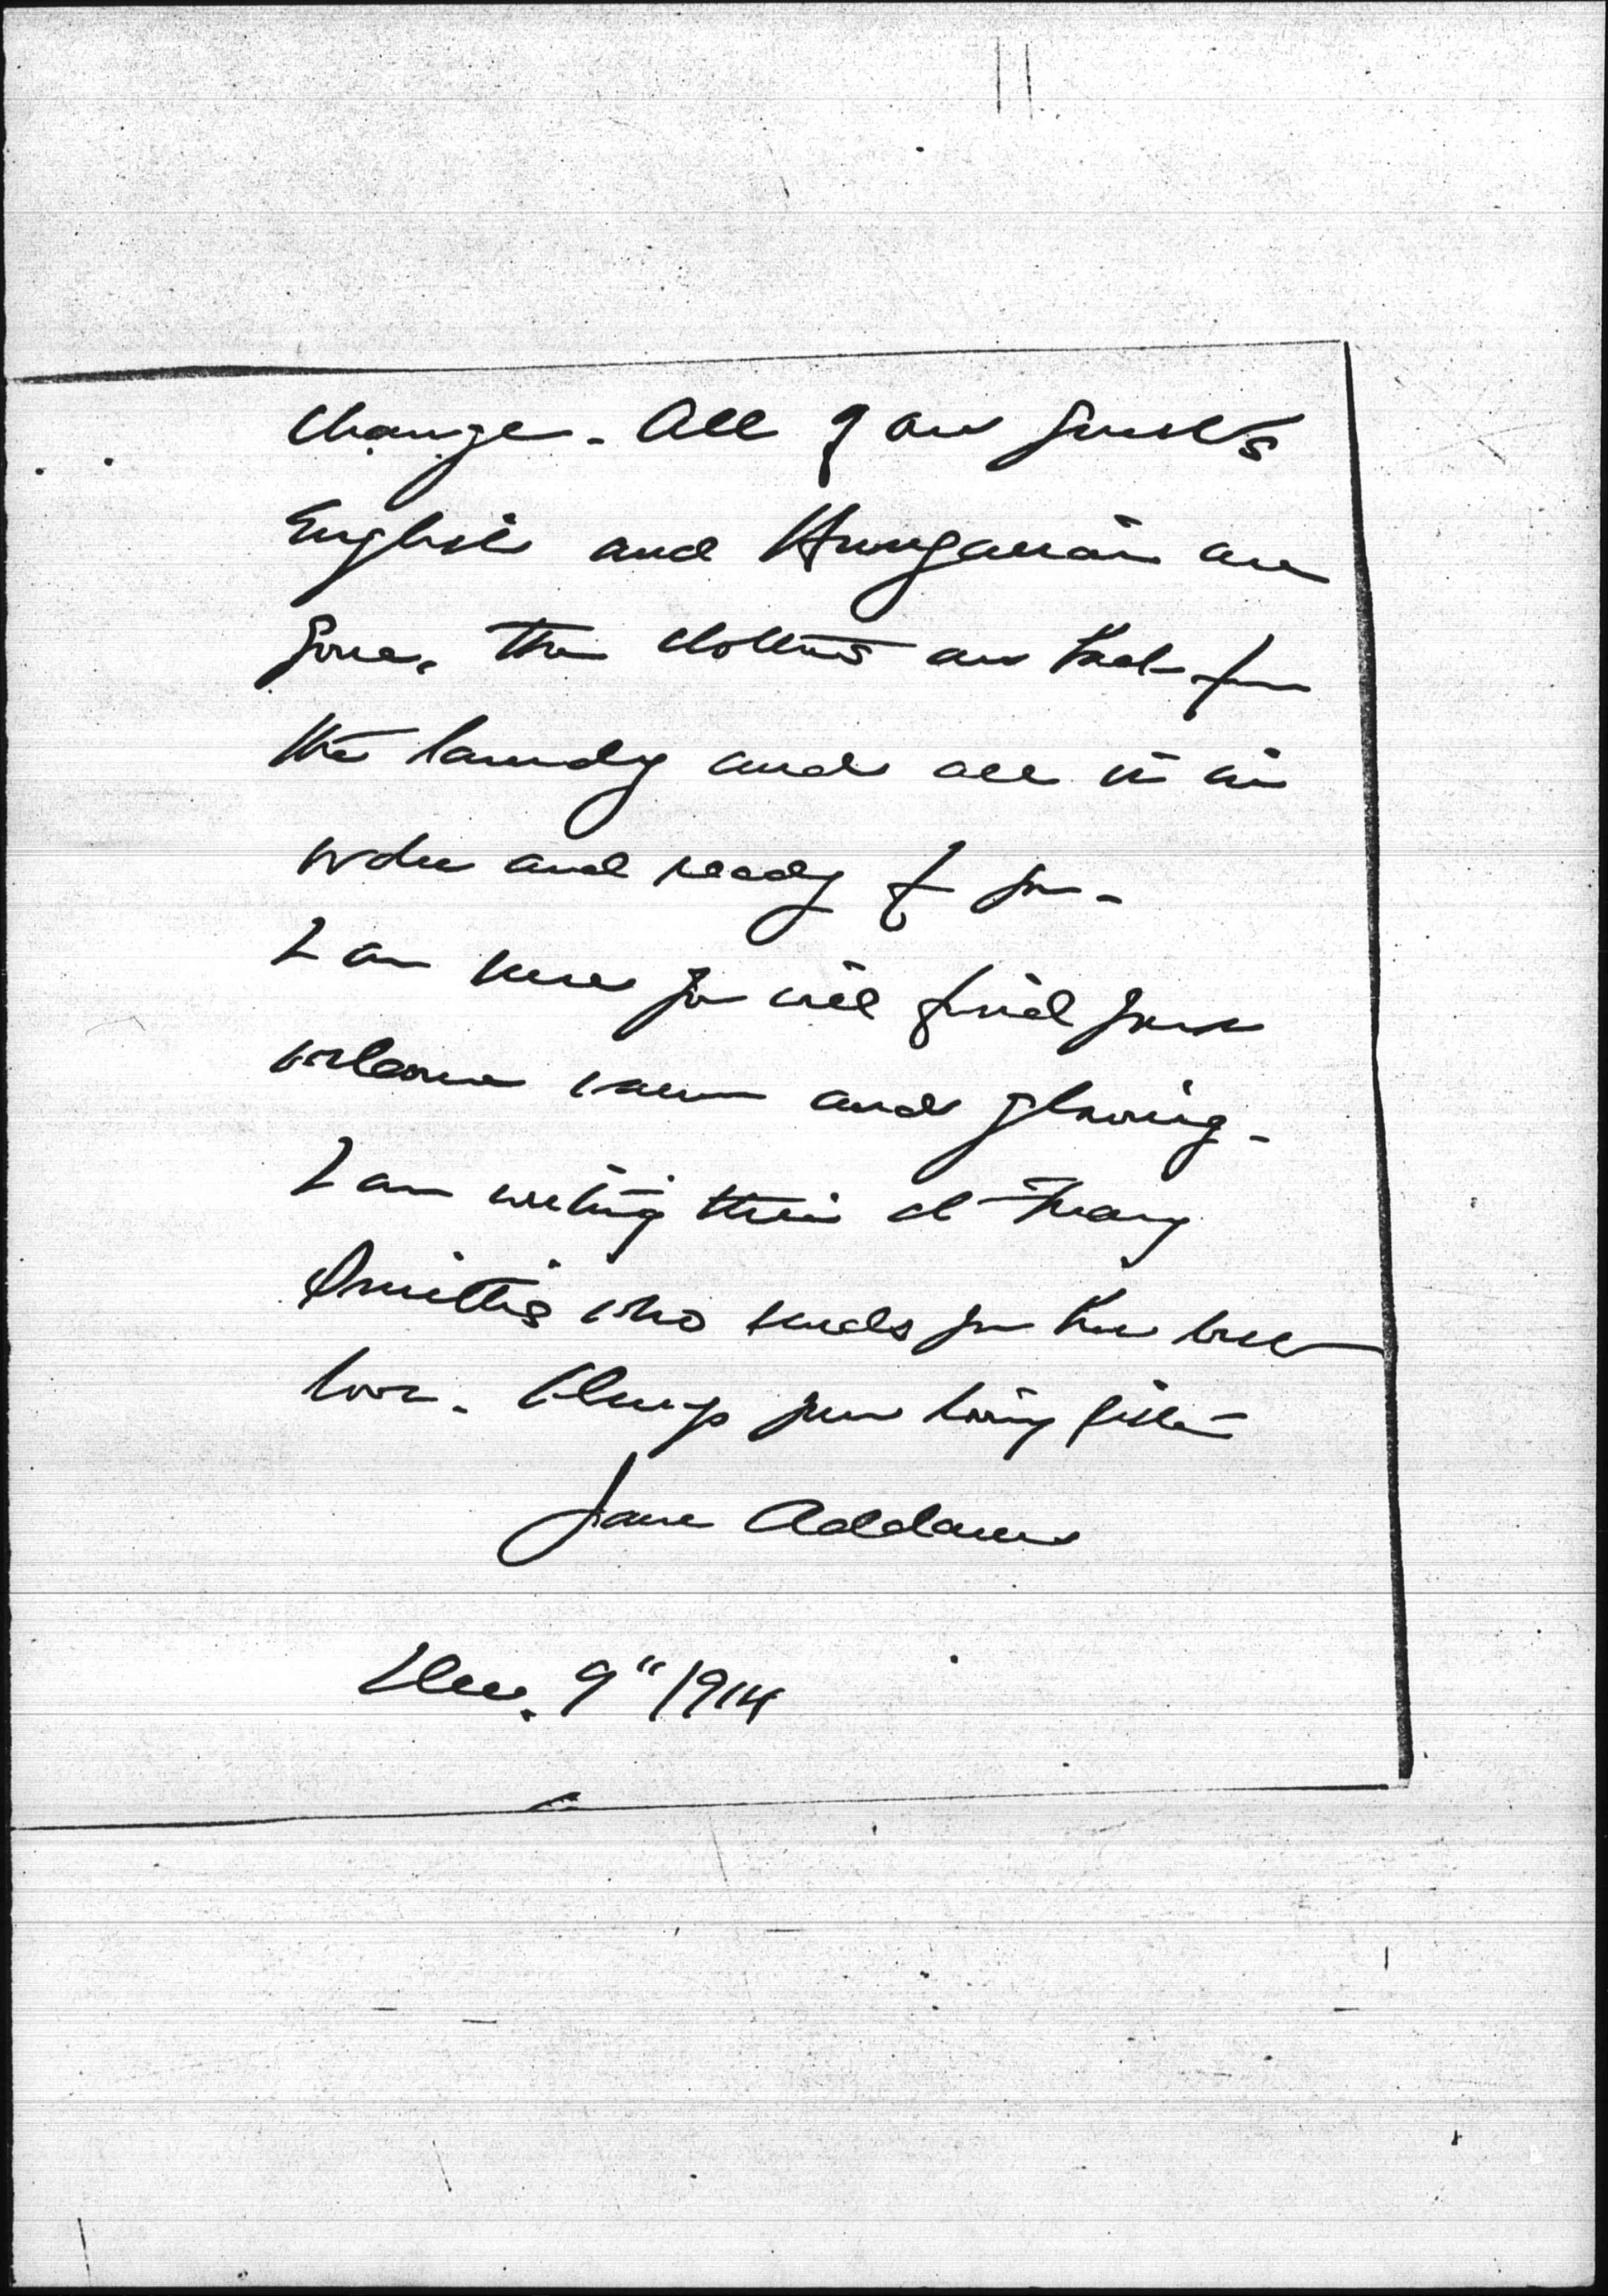 change. All of our guests
English and Hungarian are
gone, the clothes are back from
the laundry and all is in
order and ready for you.
I am sure you will find your
welcome warm and glowing.
I am writing this at Mary
Smith's who sends you her best
love. Always your loving sister
Jane Addams
Dec. 9" 1914